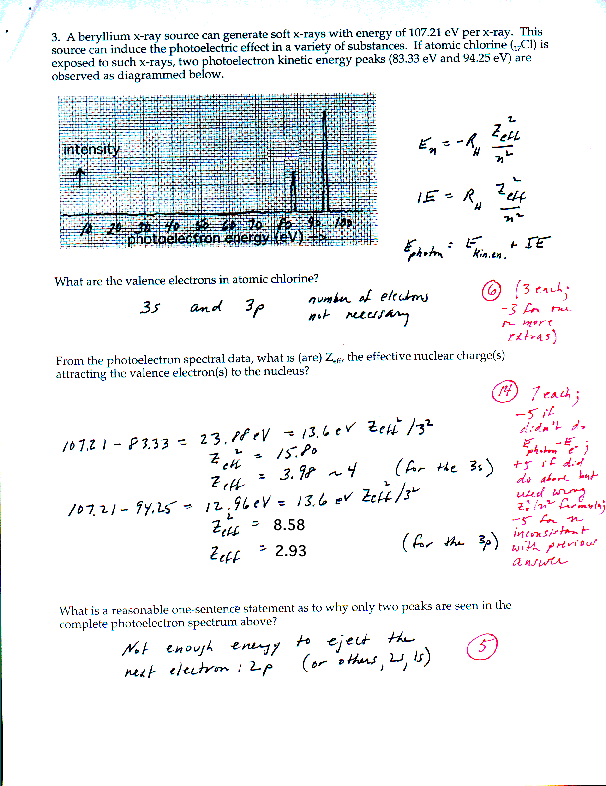 3. A beryllium x-ray source can generate soft x-rays with energy of 107.21 eV per x-ray. This
source can induce the photoelectric effect in a variety of substances. If atomic chlorine (₁₇Cl) is
exposed to such x-rays, two photoelectron kinetic energy peaks (83.33 eV and 94.25 eV) are
observed as diagrammed below.
intensity
10 20 30 40 50 60 70 80 90 100
photoelectron energy (eV)
Eₙ = -R_H Zeff²/n²
IE = R_H Zeff²/n²
Ephoton = Ekin.en. + IE
What are the valence electrons in atomic chlorine?
3s and 3p
number of electrons
not necessary
6 (3 each;
-3 for one
or more
extras)
From the photoelectron spectral data, what is (are) Zeff, the effective nuclear charge(s)
attracting the valence electron(s) to the nucleus?
14 7 each;
-5 if
didn't do
Ephoton - Ee-;
+5 if did
do above but
used wrong
Z²/n² formula;
-5 for
inconsistent
with previous
answer
107.21 - 83.33 = 23.88 eV = 13.6 eV Zeff²/3²
Zeff² = 15.80
Zeff = 3.98 ~ 4 (for the 3s)
107.21 - 94.25 = 12.96 eV = 13.6 eV Zeff²/3²
Zeff² = 8.58
Zeff = 2.93 (for the 3p)
What is a reasonable one-sentence statement as to why only two peaks are seen in the
complete photoelectron spectrum above?
Not enough energy to eject the
next electron: 2p (or others, 2s, 1s)
5